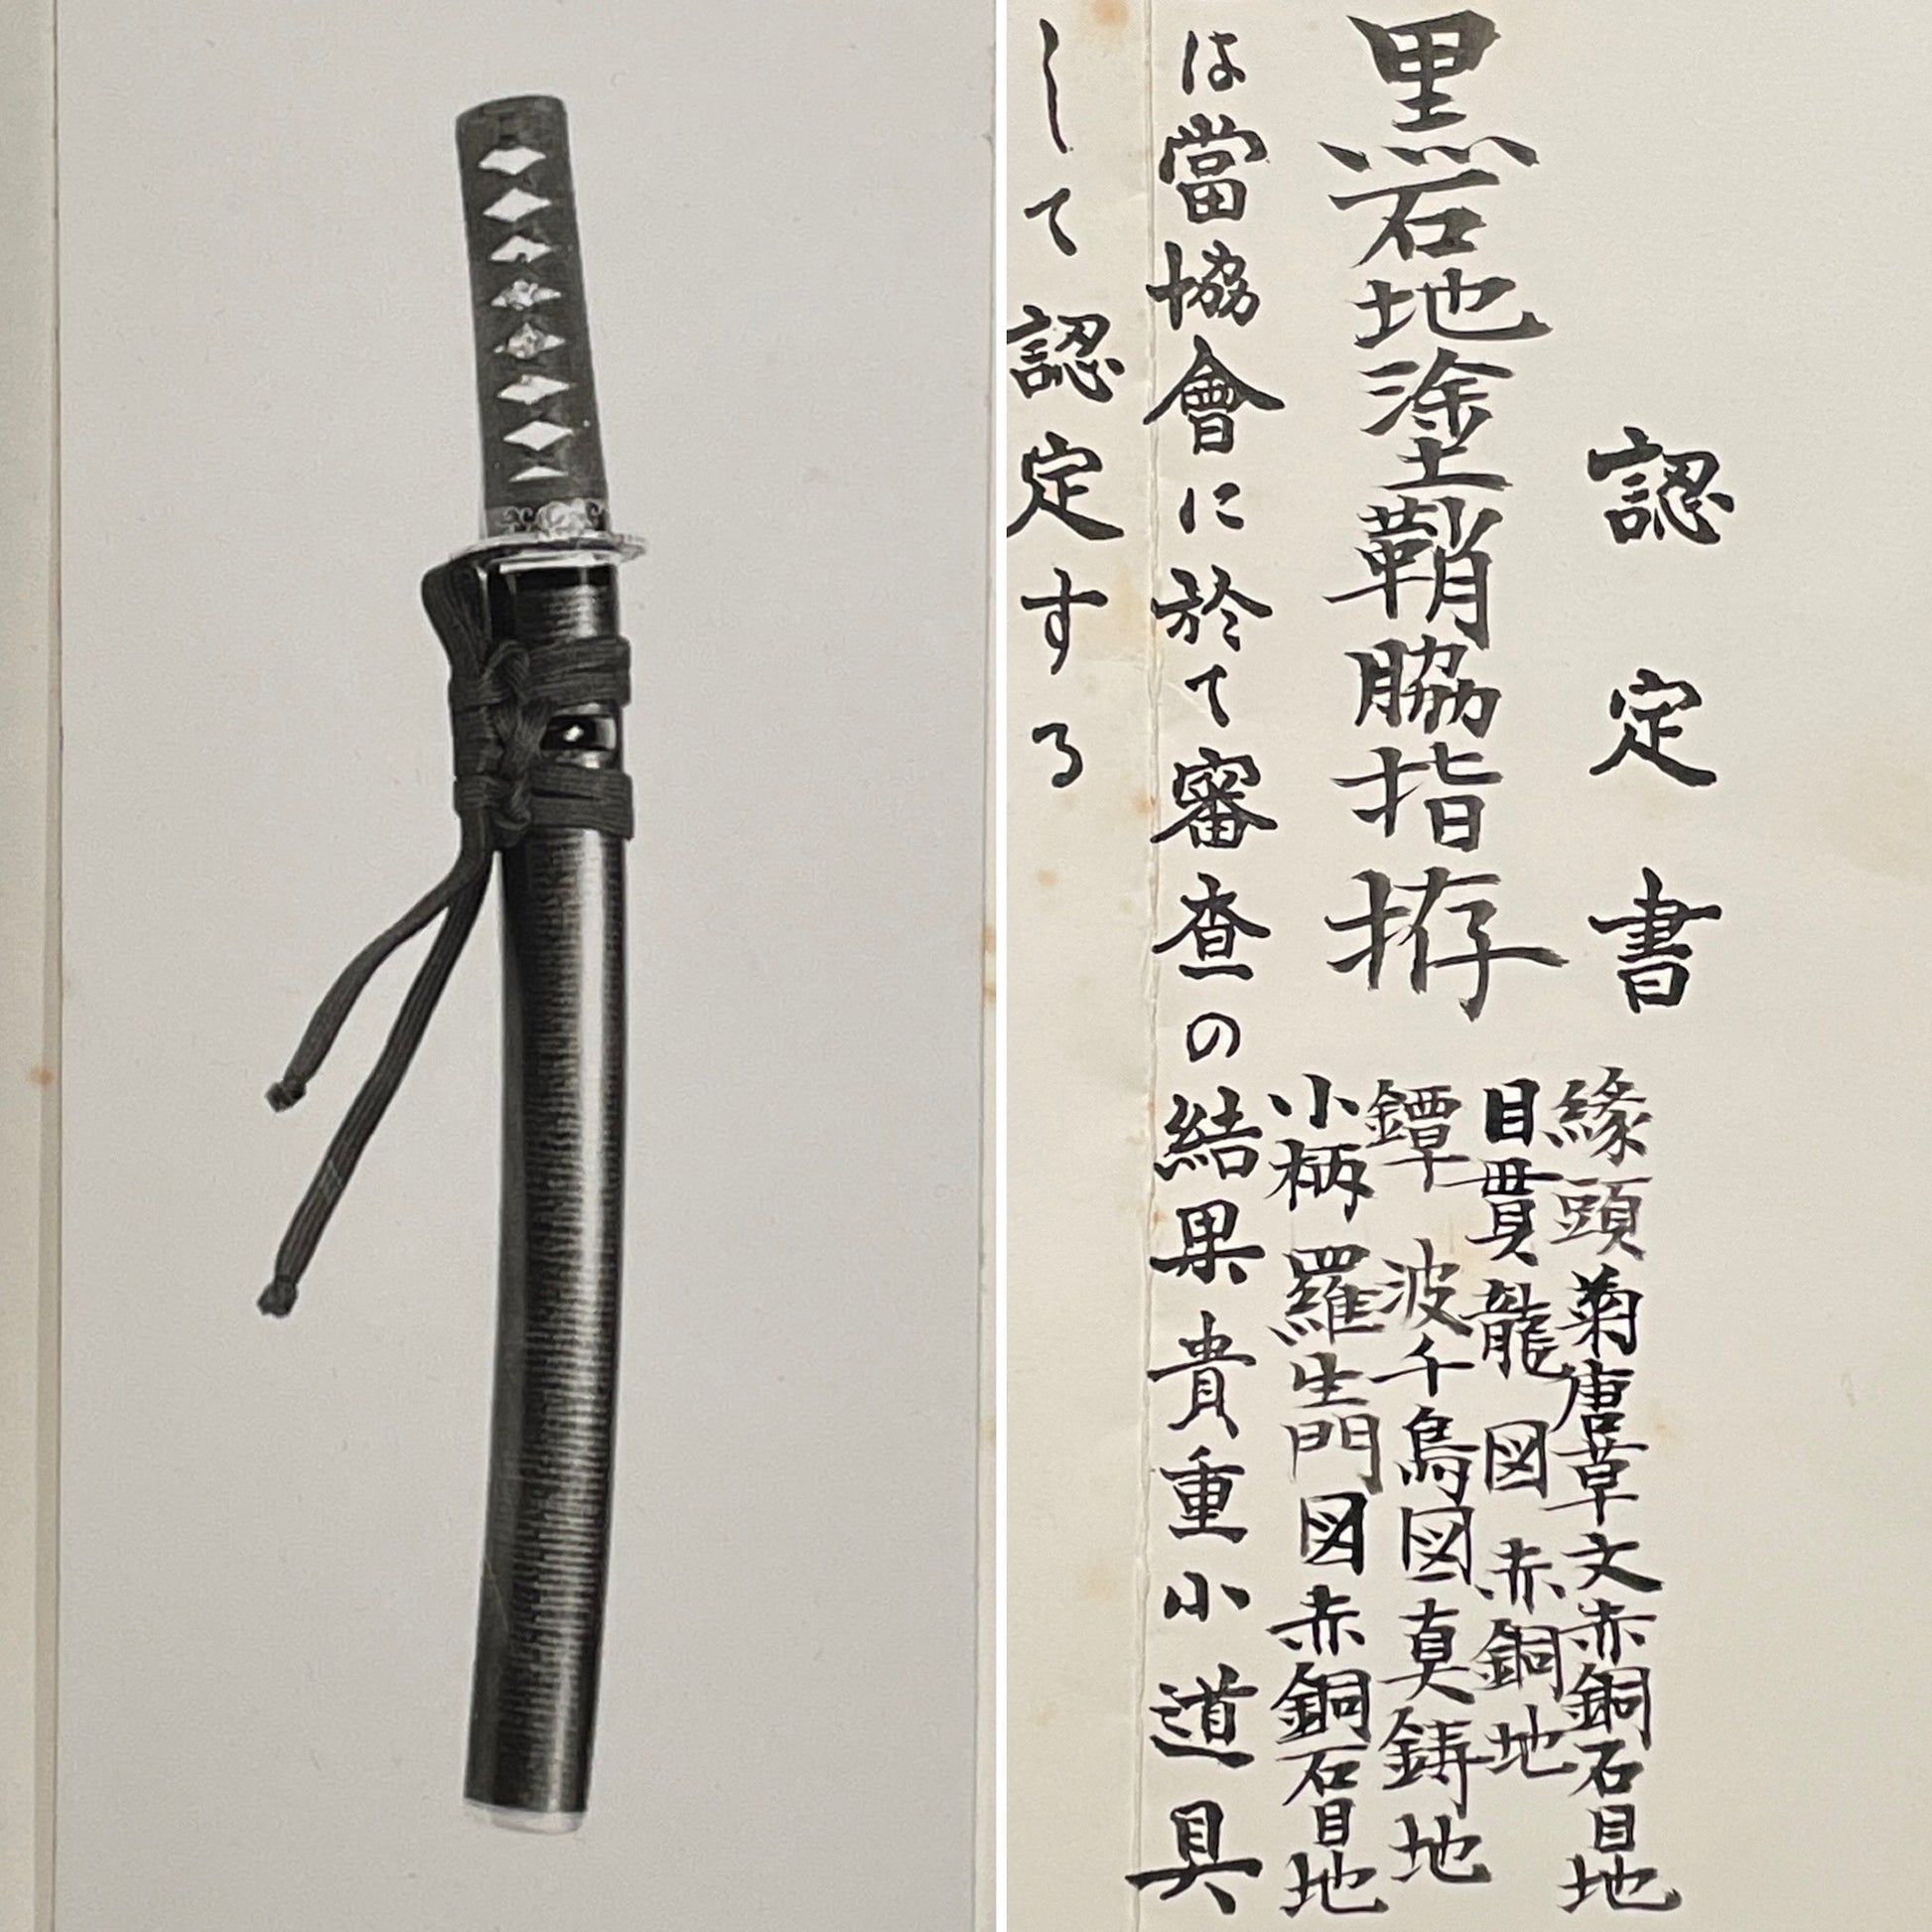 認定書
黒石地塗鞘脇指拵
縁頭菊唐草文赤銅石目地
目貫龍図赤銅地
鐔波千鳥図真鋳地
小柄羅生門図赤銅石目地
は當協會に於て審査の結果貴重小道具
して認定する